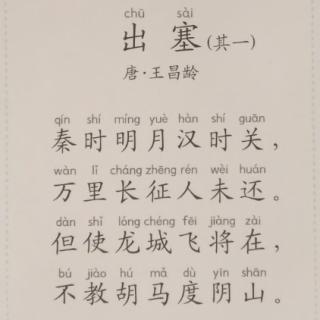 chū sài
出塞(其一)
唐·王昌龄
qín shí míng yuè hàn shí guān
秦时明月汉时关，
wàn lǐ cháng zhēng rén wèi huán
万里长征人未还。
dàn shǐ lóng chéng fēi jiàng zài
但使龙城飞将在，
bú jiào hú mǎ dù yīn shān
不教胡马度阴山。